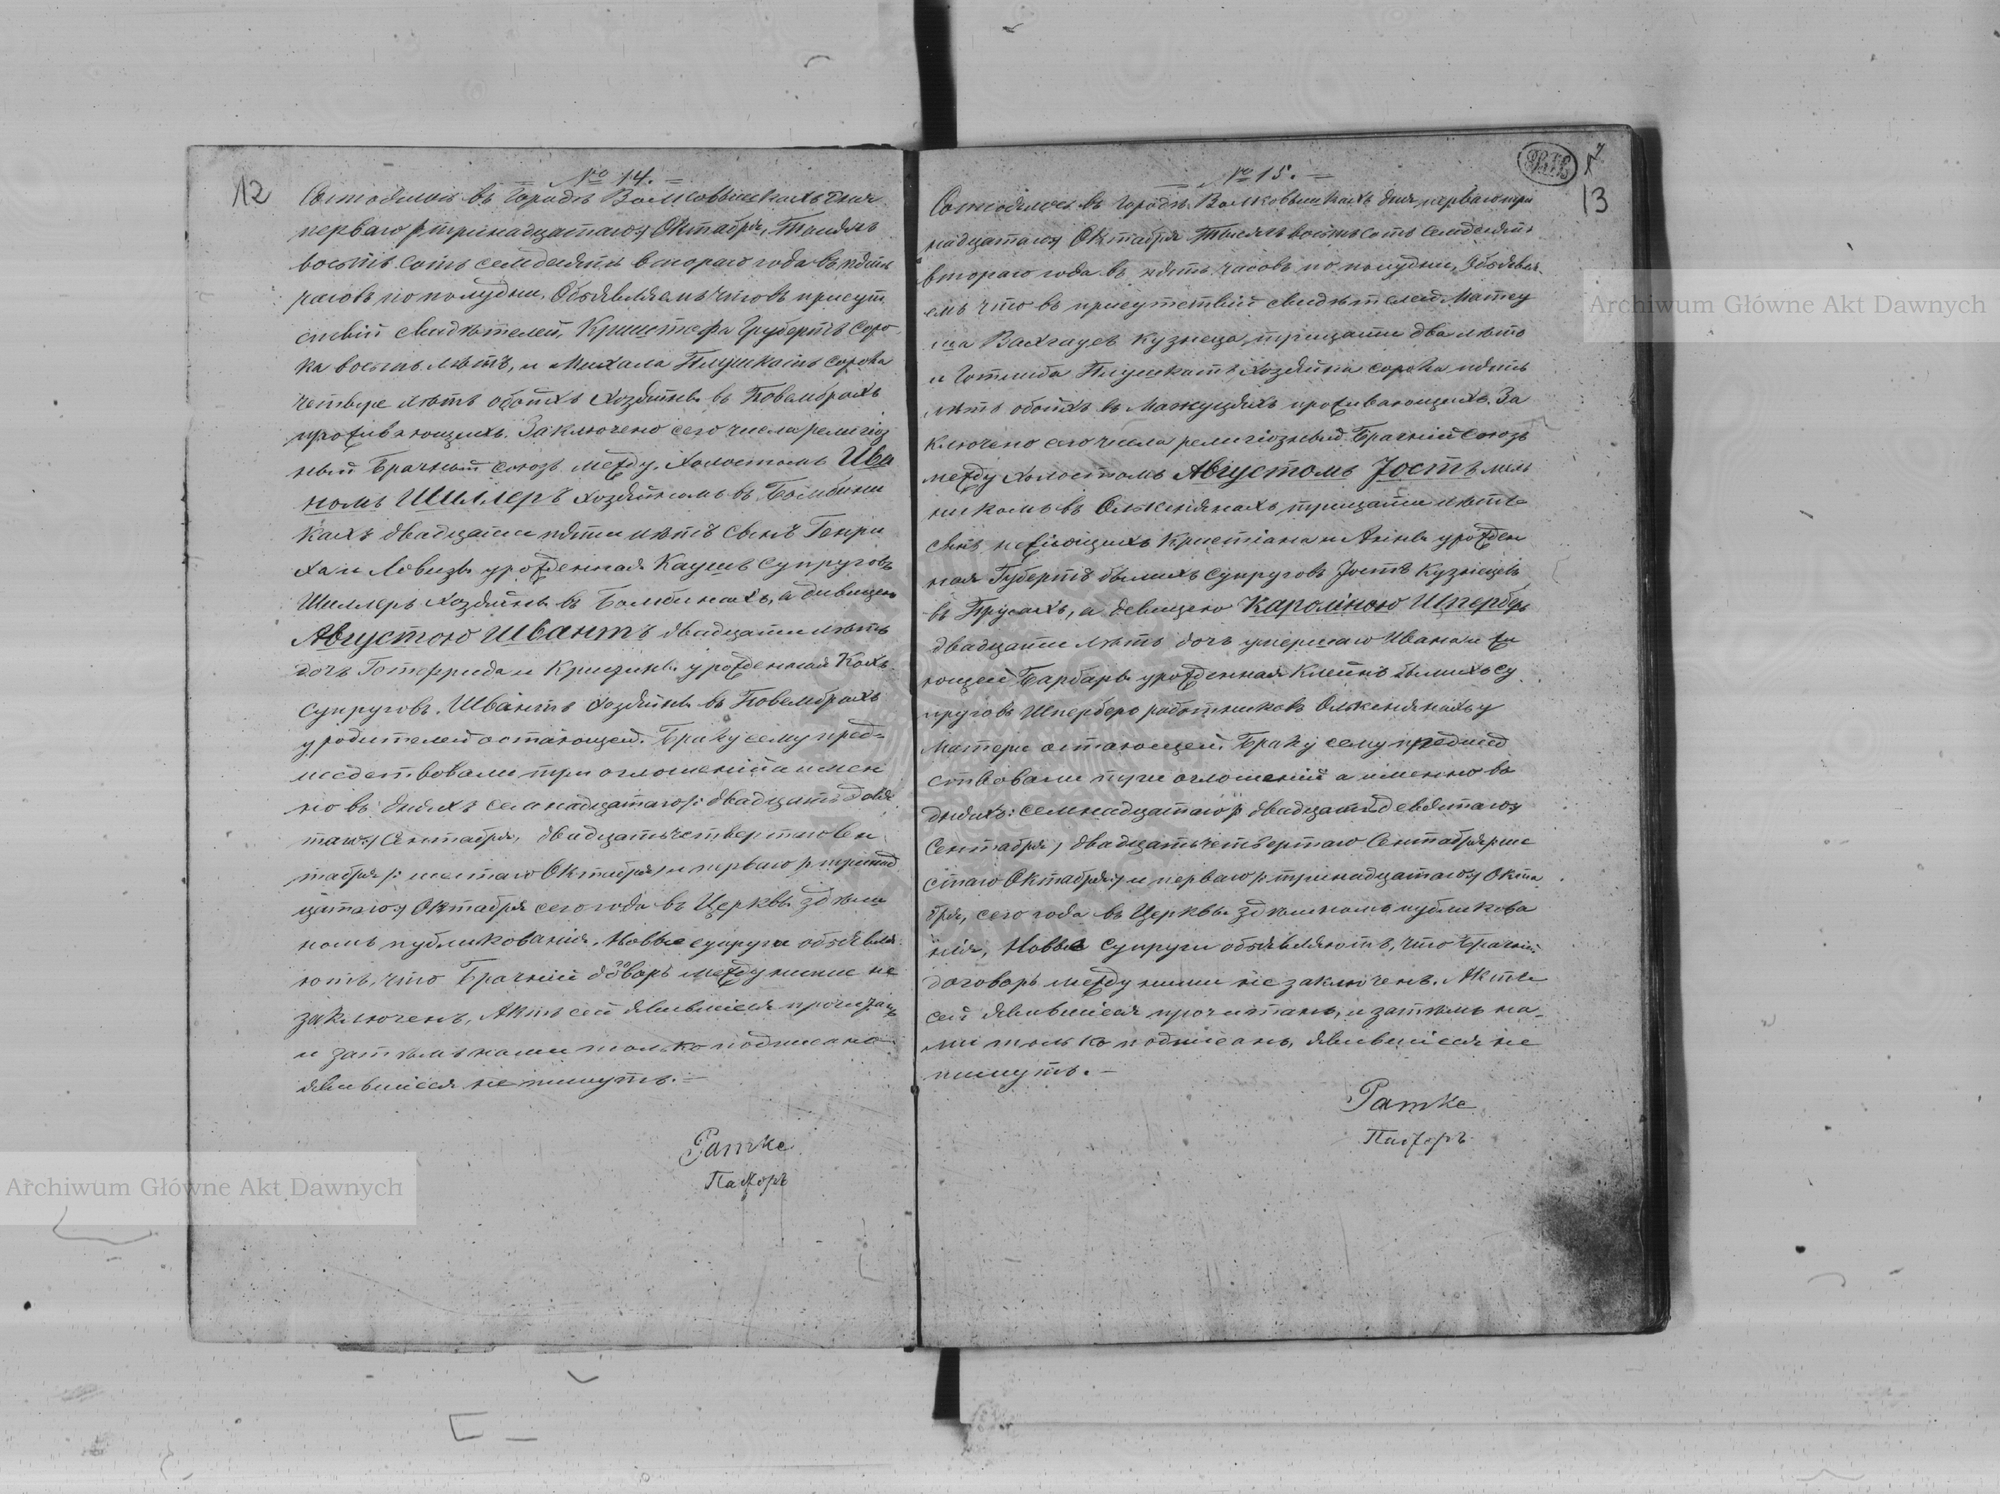 12
№ 14.
Состоялось въ Городѣ Волковышкахъ дня
перваго /: тринадцатаго :/ Октября, Тысяча
восемь сотъ семдесятъ втораго года въ пять
часовъ по полудни. Объявляемъ что въ присут
ствіи свидѣтелей, Криштофа Грубертъ соро
ка восемь лѣтъ, и Михала Плушкатъ сорока
четыре лѣтъ обоихъ хозяйны въ Повембрахъ
проживающихъ. Заключено сего числа религіоз
ный Брачный союзъ между, холостомъ Ива
номъ Шиллеръ хозяйномъ въ
кахъ двадцати пяти лѣтъ сынъ Генри
ха и Ловизы урожденная Каушъ супруговъ
Шиллеръ хозяйны въ а дивицею
Августою Швантъ двадцати лѣтъ
дочъ Готфрида и урожденной
супруговъ Швантъ хозяйны въ Повембрахъ
у родителей остающей. Браку сему пред-
шедствовали три оглошеній а имен
но въ дняхъ семнадцатаго /: двадцать девя
таго :/ Сентября, двадцать четвертаго Сен
тября /: шестаго Октября :/ и перваго /: тринад
цатаго :/ Октября сего года въ Церквы здѣш
номъ публикованія. Новые супруги объявля
ютъ, что Брачній договоръ между ними не
заключенъ, Актъ сей явившіеся прочитанъ
и затѣмъ нами только подписано
явившіеся не пишутъ.—
Ратке
Пасторъ
13
№ 15.
Состоялось въ Городѣ Волковышкахъ дня перваго /: три
надцатаго :/ Октября Тысяча восемь сотъ семдесятъ
втораго года въ пять часовъ по полудни, Объявля-
емъ что въ присутствіи свидѣтелей Матеу
ша кузнеца, трицати два лѣтъ
и Готлиба Плушкатъ хозяйна сорока пять
лѣтъ обоихъ въ Мажуцяхъ проживающихъ. За
ключено сего числа религіозный Брачній союзъ
между холостомъ Августомъ Јостъ мель
никомъ въ трицати лѣтъ
сынъ Кристіана и Анны урожден
ная Губертъ бывшихъ супруговъ Јостъ кузнецъ
въ Прусахъ, а девицею Каролиною Шперберъ
двадцати лѣтъ дочъ умершаго Ивана и жи
ющей Барбары урожденная Клейнъ бывшихъ су
пруговъ Шперберъ работниковъ у
матери остающей. Браку сему предшед
ствовали три оглошеній а именно во
дняхъ: семнадцатаго /: двадцать девятаго :/
Сентября, двадцать четвертаго Сентября /: ше
стаго Октября :/ и перваго /: тринадцатаго :/ Октя-
бря, сего года въ Церквы здѣшномъ публикова
нія, Новые супруги объявляютъ, что Брачній
договоръ между ними не заключенъ. Актъ
сей явившіеся прочитанъ, и затѣмъ на-
ми только подписанъ, явившіеся не
пишутъ.—
Ратке
Пасторъ
Archiwum Główne Akt Dawnych
Archiwum Główne Akt Dawnych